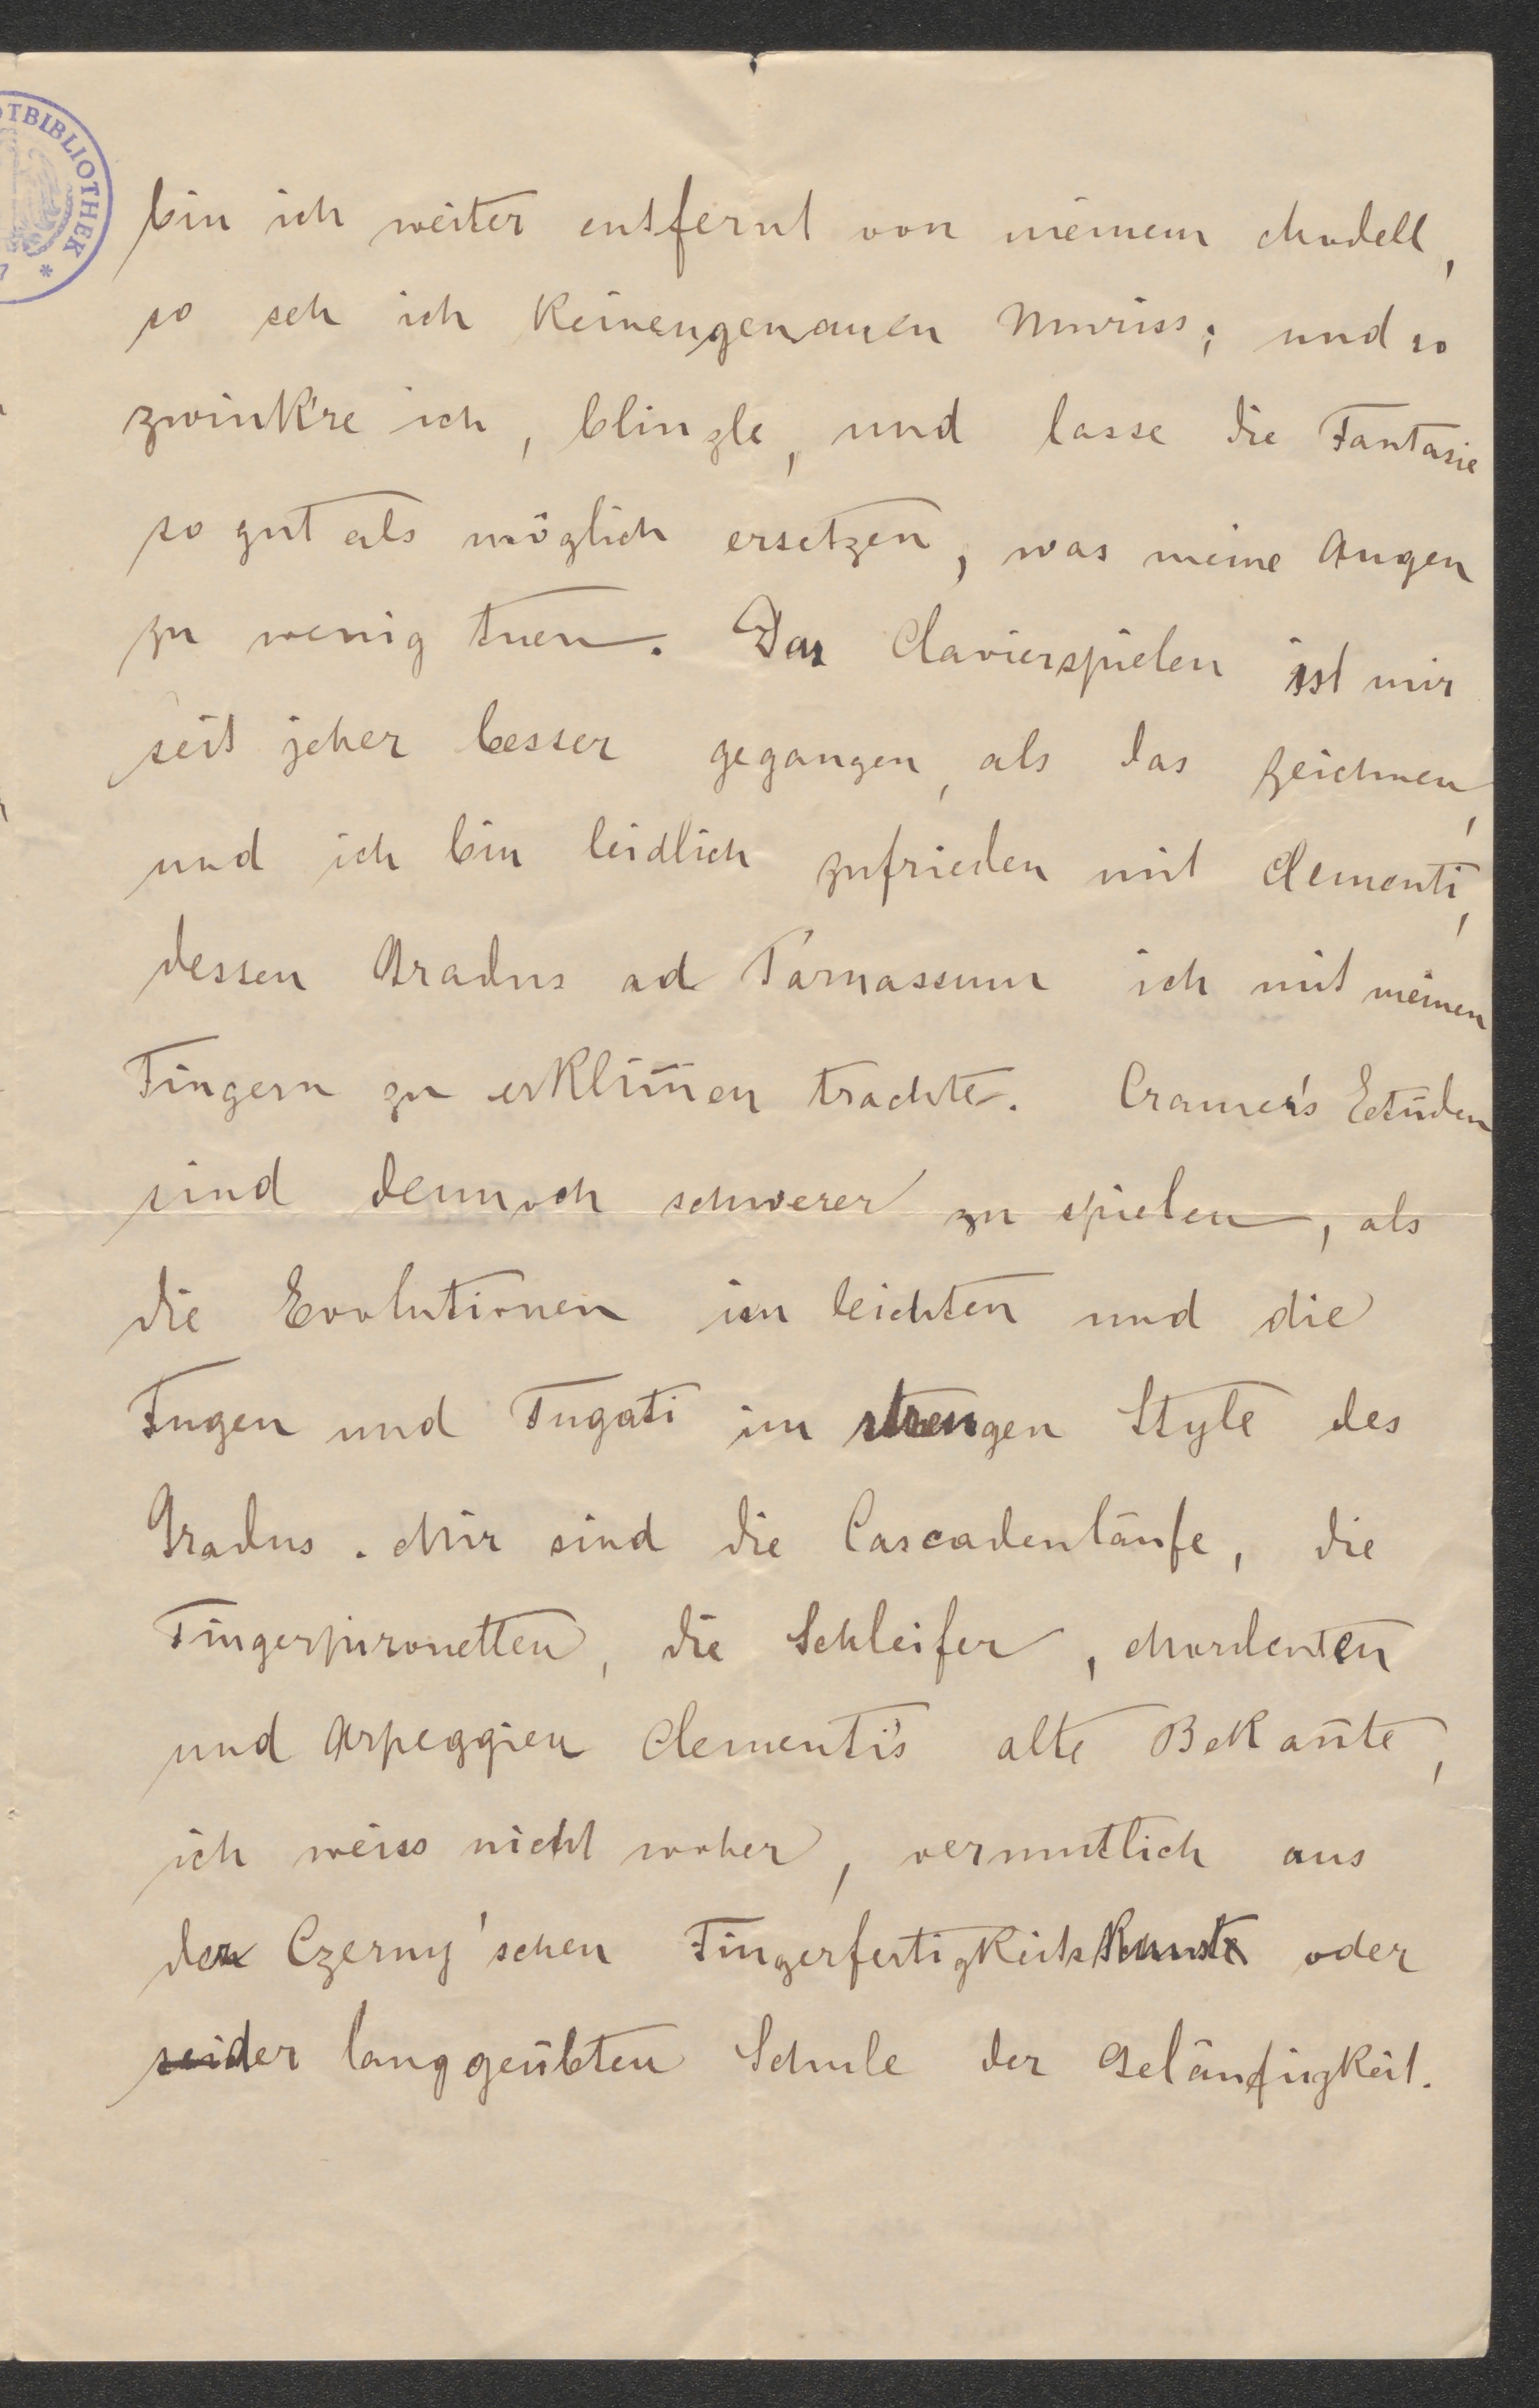 TBIBLIOTHEK
7 *
bin ich weiter entfernt von meinem Modell,
so seh ich keinen genauen Umriss; und so
zwink're ich, blinzle, und lasse die Fantasie
so gut als möglich ersetzen, was meine Augen
zu wenig tuen. Das Clavierspielen ist mir
seit jeher besser gegangen, als das Zeichnen,
und ich bin leidlich zufrieden mit Clementi,
dessen Gradus ad Parnassum ich mit meinen
Fingern zu erklim̄en trachte. Cramer's Etüden
sind dennoch schwerer zu spielen, als
die Evolutionen im leichten und die
Fugen und Fugati im strengen Style des
Gradus. Mir sind die Cascadenläufe, die
Fingerpirouetten, die Schleifer, Mordenten
und Arpeggien Clementi's alte Bekan̄te,
ich weiss nicht woher, vermutlich aus
der Czerny'schen Fingerfertigkeitskunst oder
der langgeübten Schule der Geläufigkeit.